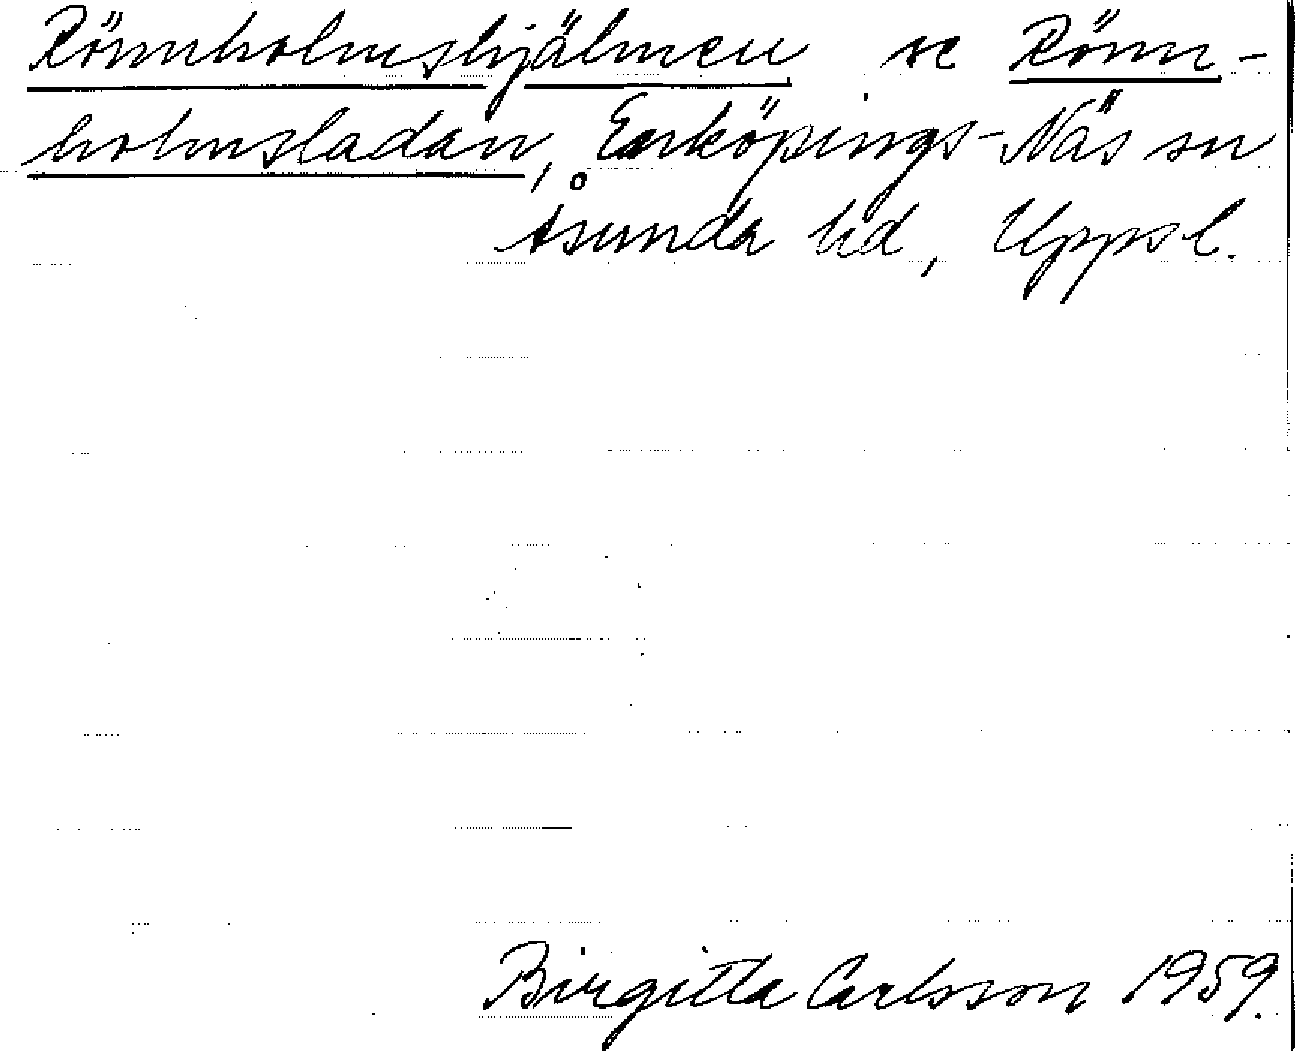 Rönnholmshjälmen se Rönn-
holmsladan, Enköpings-Näs sn
Åsunda hd, Uppsl.
Birgitta Carlsson 1959.